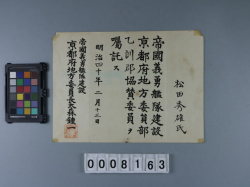 松田秀雄氏
帝國義勇艦隊建設
京都府地方委員部
乙訓郡協賛委員ヲ
囑託ス
明治四十年二月十三日
帝國義勇艦隊建設
京都府地方委員長大森鍾一
0008163